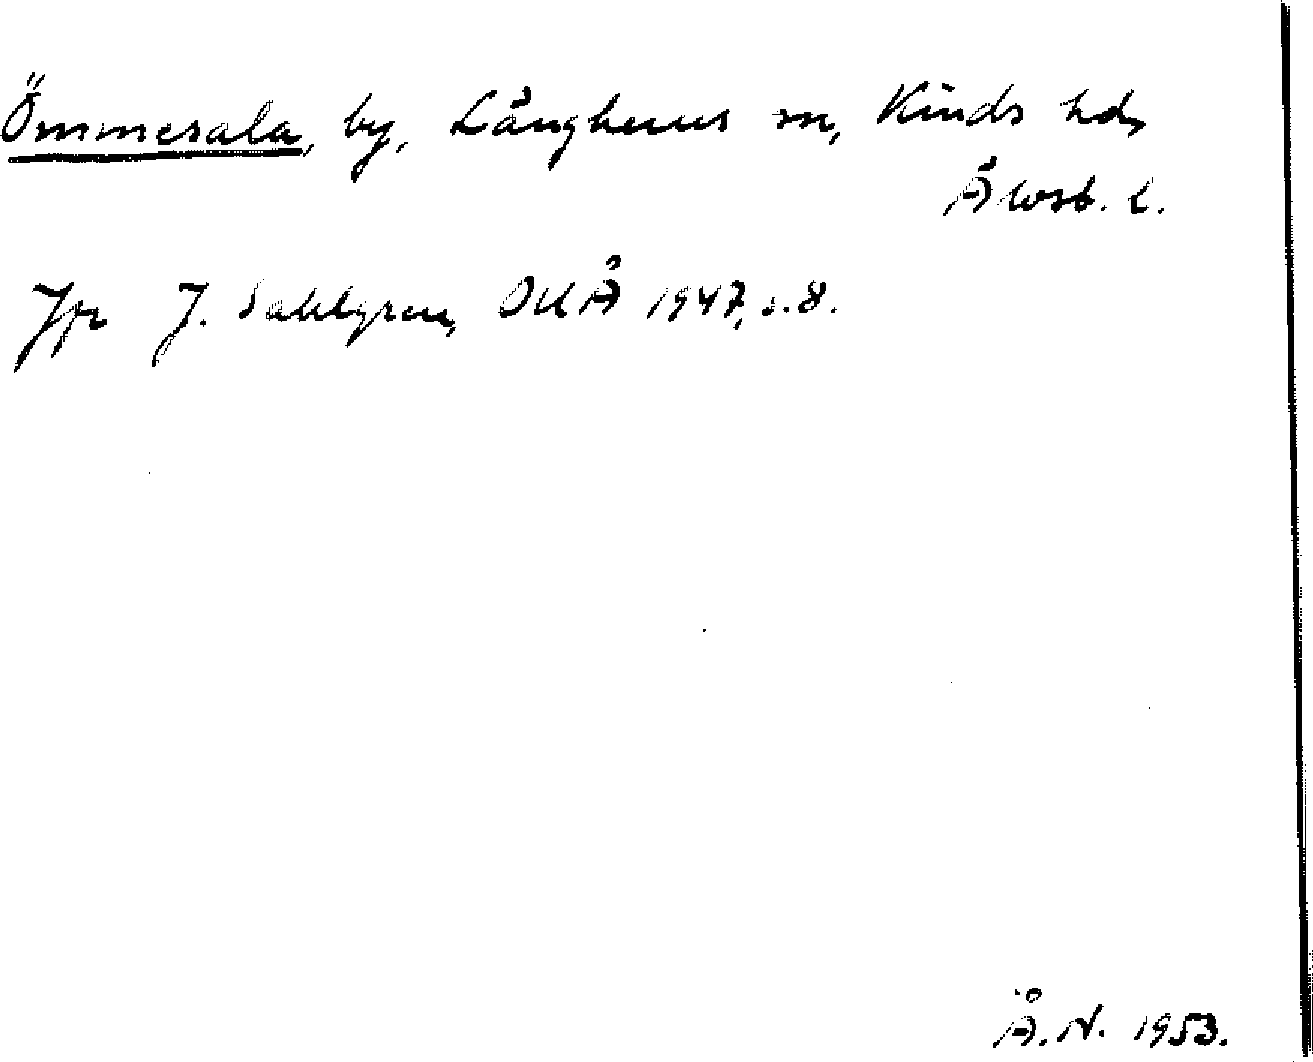 Ömmesala, by, Långhems sn, Kinds hd,
Älvsb. l.
Jfr J. Sahlgren, OUÅ 1947, s. 8.
Å. N. 1953.